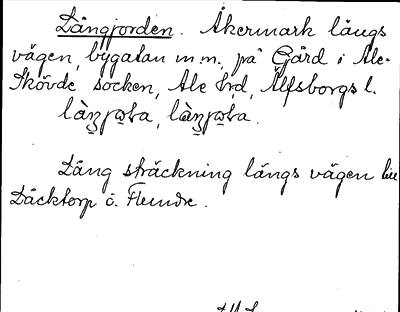 Långjorden. Åkermark längs
vägen, bygatan m.m., på Gård i Ale-
Skövde socken, Ale hd, Älfsborgs l.
Lång sträckning längs vägen till
Däcktorp o. Flundre.